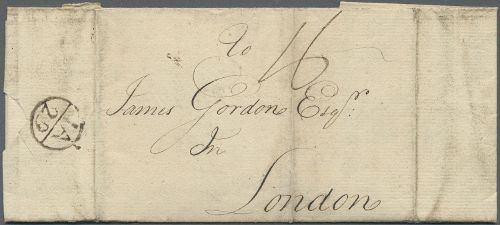 To
16
James Gordon Esqr.
In
London